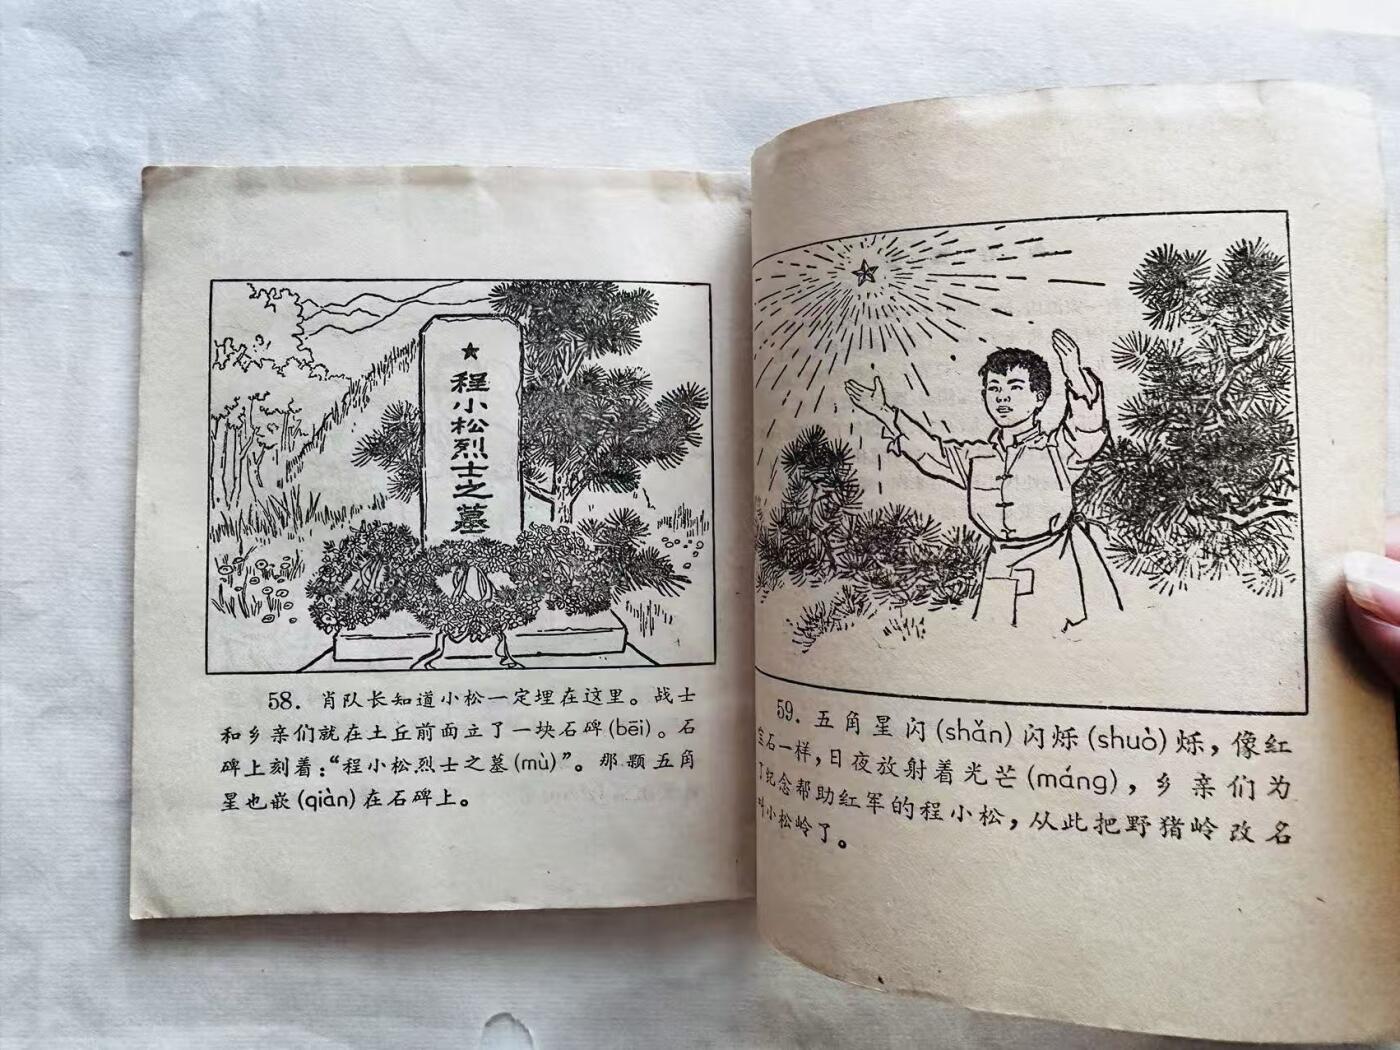 程小松烈士之墓
58. 肖队长知道小松一定埋在这里。战士
和乡亲们就在土丘前面立了一块石碑(bēi)。石
碑上刻着:“程小松烈士之墓(mù)”。那颗五角
星也嵌(qiàn)在石碑上。
59. 五角星闪(shǎn)闪烁(shuò)烁,像红
宝石一样,日夜放射着光芒(máng),乡亲们为
了纪念帮助红军的程小松,从此把野猪岭改名
叫小松岭了。